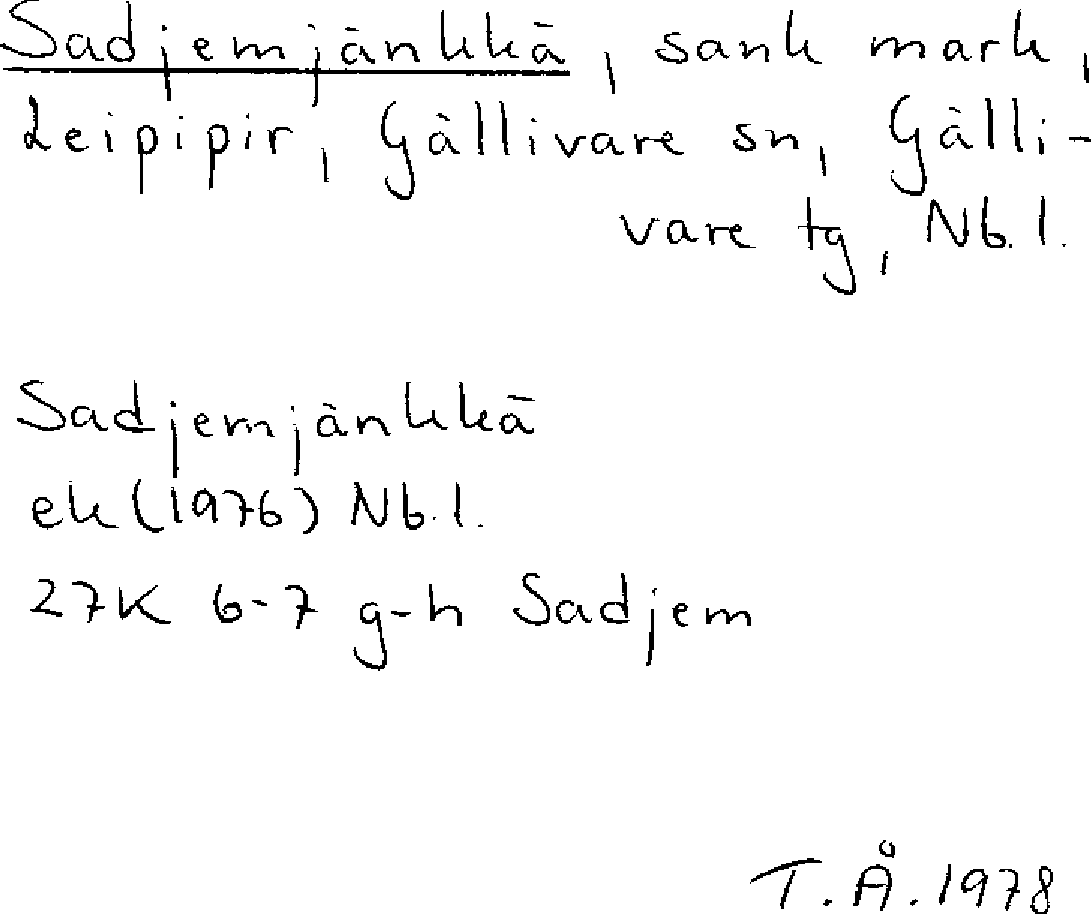 Sadjemjänkkä, sank mark,
Leipipir, Gällivare sn, Gälli-
vare tg, Nb.l.
Sadjemjänkkä
ek (1976) Nb.l.
27K 6-7 g-h Sadjem
T.Å.1978